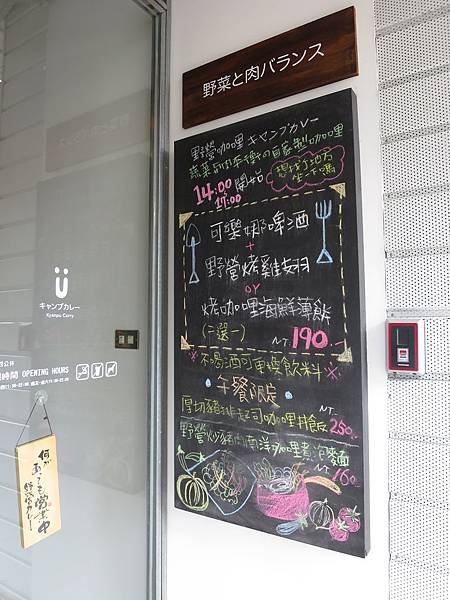 野菜と肉バランス
野營咖哩 キャンプカレー
蔬菜與肉平衡の自家製咖哩
14:00 開始
17:00
想找個地方
坐下嗎
可樂娜啤酒
+
野營烤雞翅
or
烤咖哩海鮮薄餅
(二選一) NT 190
※不喝酒可更換飲料※
午餐限定
厚切豬排起司咖哩丼飯 NT 250
野營炒豬肉南洋咖哩煮泡麵
NT 160
Ü
キャンプカレー
Kyanpu Curry
時間 OPENING HOURS
何が
あっても営業中
野營カレー!